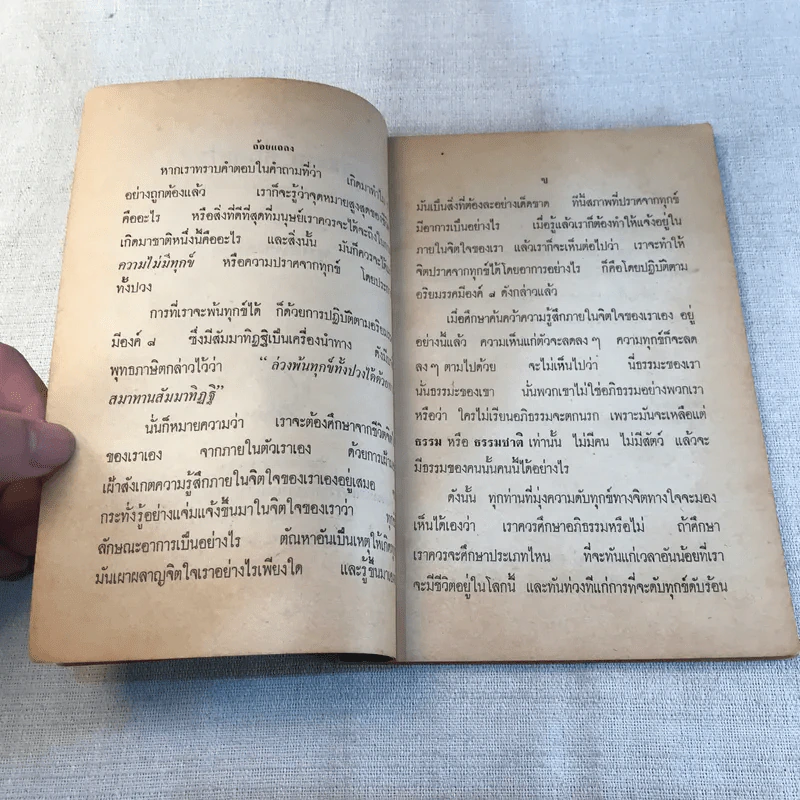 ถ้อยแถลง
หากเราทราบคำตอบในคำถามที่ว่า เกิดมาทำไม
อย่างถูกต้องแล้ว เราก็จะรู้ว่าจุดหมายสูงสุดของชีวิต
คืออะไร หรือสิ่งที่ดีที่สุดที่มนุษย์เราควรจะได้จะถึงใน
เกิดมาชาติหนึ่งนี้คืออะไร และสิ่งนั้น มันก็ควรจะได้แก่
ความไม่มีทุกข์ หรือความปราศจากทุกข์
ทั้งปวง
การที่เราจะพ้นทุกข์ได้ ก็ด้วยการปฏิบัติตามอริยมรรค
มีองค์ ๘ ซึ่งมีสัมมาทิฏฐิเป็นเครื่องนำทาง
พุทธภาษิตกล่าวไว้ว่า “ ล่วงพ้นทุกข์ทั้งปวงได้ด้วย
สมาทานสัมมาทิฏฐิ”
นั่นก็หมายความว่า เราจะต้องศึกษาจากชีวิต
ของเราเอง จากภายในตัวเราเอง ด้วยการ
เฝ้าสังเกตความรู้สึกภายในจิตใจของเราเองอยู่เสมอ
กระทั่งรู้อย่างแจ่มแจ้งขึ้นมาในจิตใจของเราว่า
ลักษณะอาการเป็นอย่างไร ตัณหาอันเป็นเหตุให้เกิด
มันเผาผลาญจิตใจเราอย่างไรเพียงใด และรู้ขึ้นมา
ข
มันเป็นสิ่งที่ต้องละอย่างเด็ดขาด ทีนี้สภาพที่ปราศจากทุกข์
มีอาการเป็นอย่างไร เมื่อรู้แล้วเราก็ต้องทำให้แจ้งอยู่ใน
ภายในจิตใจของเรา แล้วเราก็จะเห็นต่อไปว่า เราจะทำให้
จิตปราศจากทุกข์ได้โดยอาการอย่างไร ก็คือโดยปฏิบัติตาม
อริยมรรคมีองค์ ๘ ดังกล่าวแล้ว
เมื่อศึกษาค้นคว้าความรู้สึกภายในจิตใจของเราเอง อยู่
อย่างนี้แล้ว ความเห็นแก่ตัวจะลดลงๆ ความทุกข์ก็จะลด
ลงๆ ตามไปด้วย จะไม่เห็นไปว่า นี่ธรรมะของเรา
นั่นธรรมะของเขา นั้นพวกเขาไม่ใช่อภิธรรมอย่างพวกเรา
หรือว่า ใครไม่เรียนอภิธรรมจะตกนรก เพราะมันจะเหลือแต่
ธรรม หรือ ธรรมชาติ เท่านั้น ไม่มีคน ไม่มีสัตว์ แล้วจะ
มีธรรมของคนนั้นคนนี้ได้อย่างไร
ดังนั้น ทุกท่านที่มุ่งความดับทุกข์ทางจิตทางใจจะมอง
เห็นได้เองว่า เราควรศึกษาอภิธรรมหรือไม่ ถ้าศึกษา
เราควรจะศึกษาประเภทไหน ที่จะทันแก่เวลาอันน้อยที่เรา
จะมีชีวิตอยู่ในโลกนี้ และทันท่วงทีแก่การที่จะดับทุกข์ดับร้อน